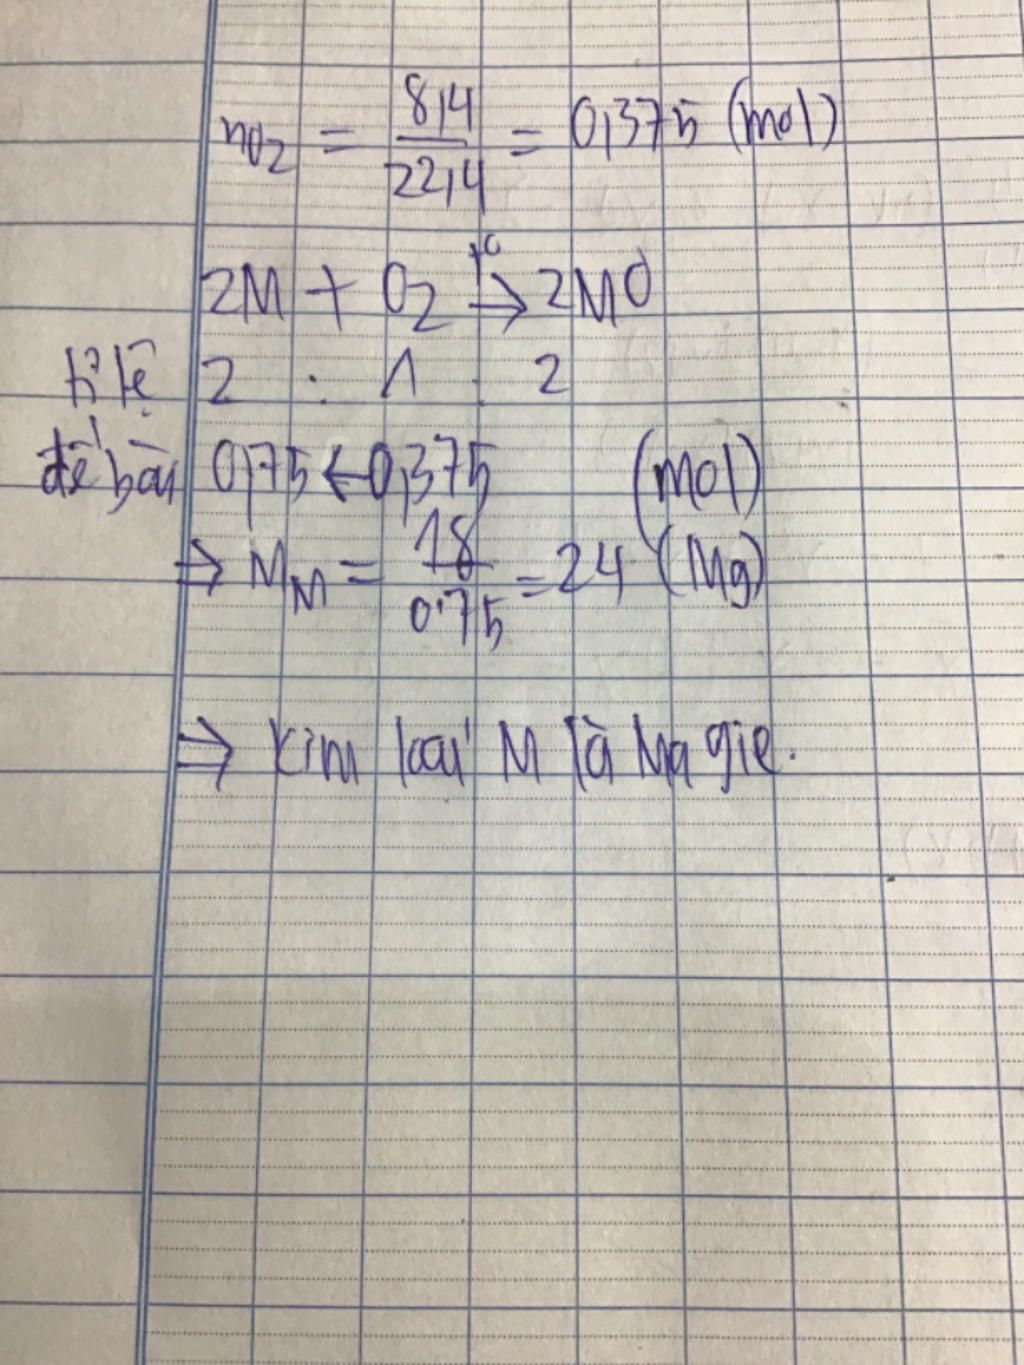 nO2 = 8,4/22,4 = 0,375 (mol)
2M + O2 t°→ 2MO
tỉ lệ 2 : 1 : 2
đề bài 0,75 ← 0,375 (mol)
⇒ MM = 18/0,75 = 24 (Mg)
⇒ Kim loại M là Magie.